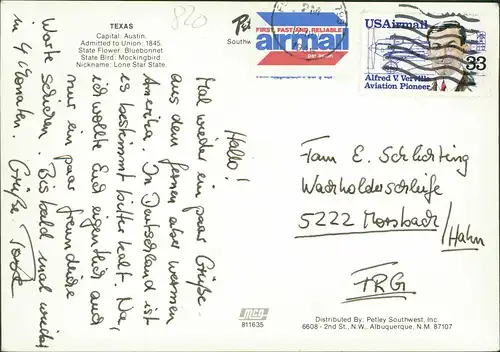 TEXAS
Capital: Austin.
Admitted to Union: 1845.
State Flower: Bluebonnet.
State Bird: Mockingbird.
Nickname: Lone Star State.
820
FIRST, FAST AND RELIABLE
airmail
par avion
USAirmail
33
Alfred V. Verville
Aviation Pioneer
Hallo!
Mal wieder ein paar Grüße
aus dem fernen aber warmen
Amerika. In Deutschland ist
es bestimmt bitter kalt. Na,
ich wollte Euch eigentlich auch
nur ein paar freundliche
Worte schicken. Bis bald mal wieder
in 4 Monaten. Grüße
Fam E. Schlichting
Wacholderschleife
5222 Morsbach/
Hahn
FRG
mcg
811635
Distributed By: Petley Southwest, Inc.
6608 - 2nd St., N.W., Albuquerque, N.M. 87107